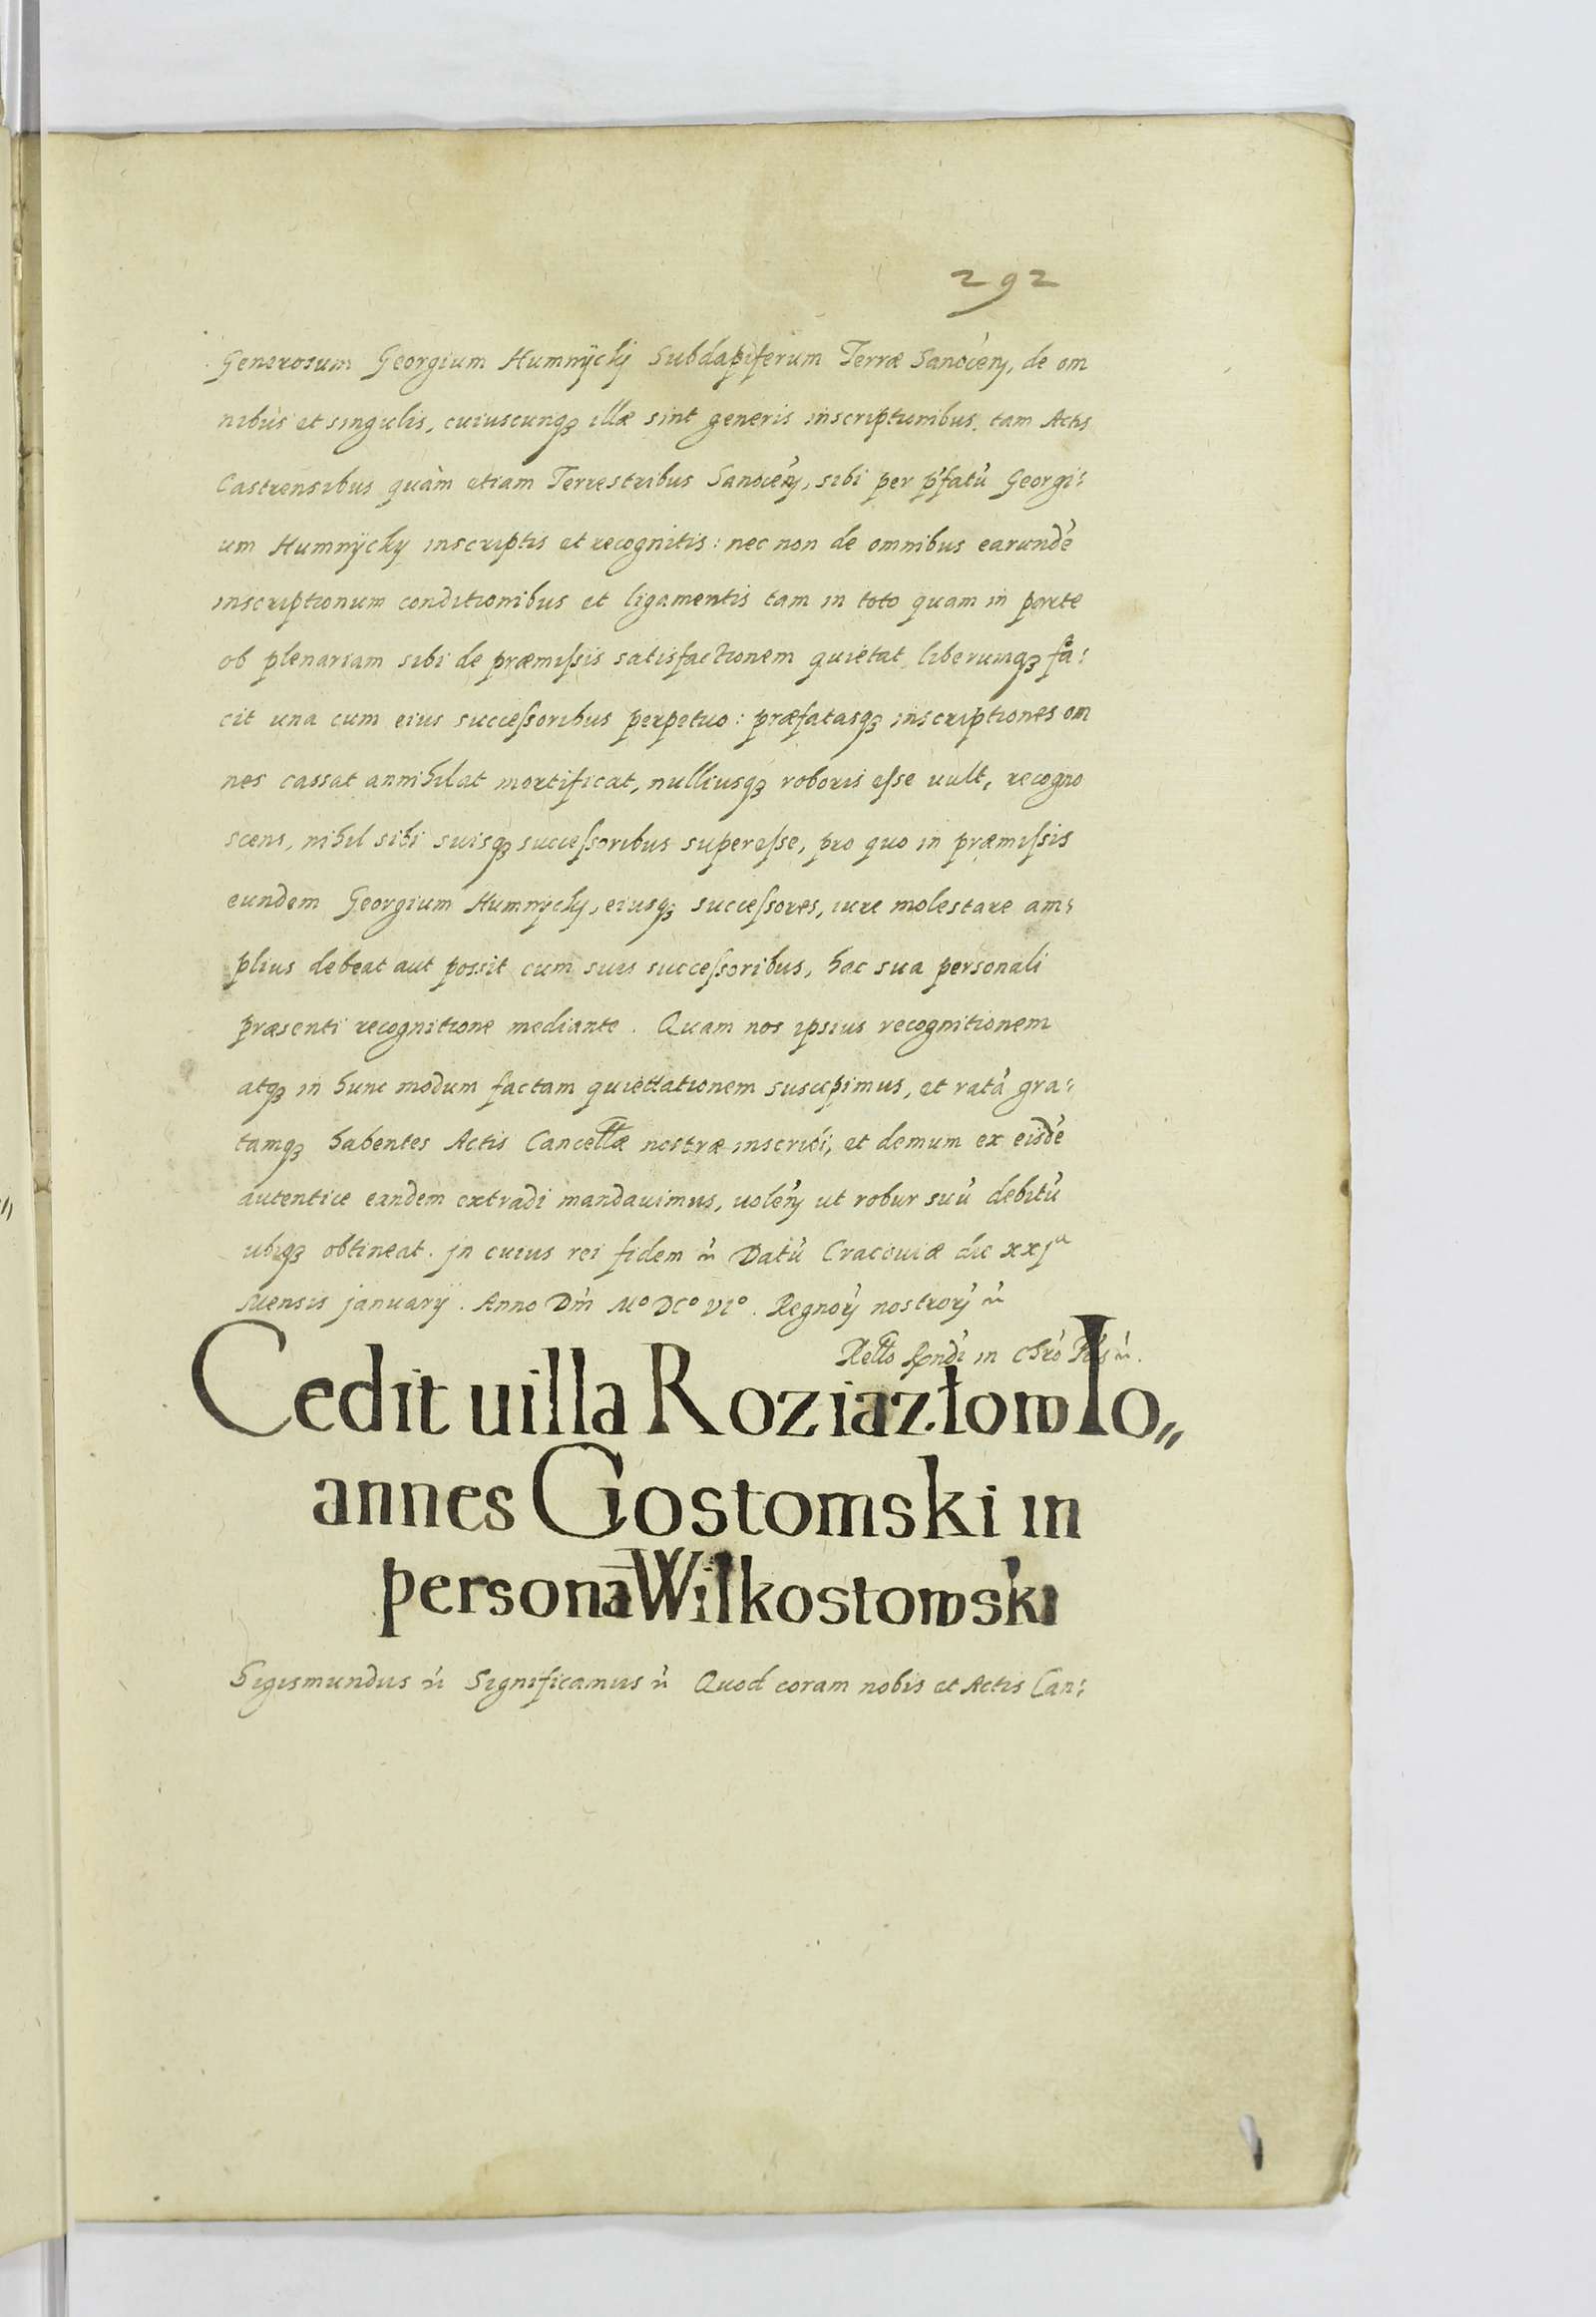 292
Generosum Georgium Humnÿckÿ Subdapiferum Terræ Sanoceñ, de om
nibus et singulis, cuiuscunqꝫ illæ sint generis inscriptionibus, tam Actis
Castrensibus quàm etiam Terrestribus Sanoceñ, sibi per p̃fatũ Georgi:
um Humnÿcky inscriptis et recognitis: nec non de omnibus earundẽ
inscriptionum conditionibus et ligamentis tam in toto quam in parte
ob plenariam sibi de præmiſsis satisfactionem quietat liberumqꝫ fa:
cit una cum eius succeſsoribus perpetuo: præfatasqꝫ inscriptiones om
nes cassat annihilat mortificat, nulliusqꝫ roboris eſse uult, recogno
scens, nihil sibi suisqꝫ succeſsoribus supereſse, pro quo in præmiſsis
eundem Georgium Humnÿcky, eiusqꝫ succeſsores, iure molestare am:
plius debeat aut possit cum suis succeſsoribus, hac sua personali
præsenti recognitione mediante. Quam nos ipsius recognitionem
atqꝫ in hunc modum factam quiettationem suscipimus, et ratã gra:
tamqꝫ habentes Actis Cancellæ nostræ inscribi, et demum ex eisdẽ
autentice eandem extradi mandauimus, uoleñ ut robur suũ debitũ
ubiqꝫ obtineat. Jn cuius rei fidem ñ Datũ Cracouiæ die xxjᵃ
Mensis januarÿ. Anno Dñi Mº DCº VIº. Regnorũ nostrorũ ñ
in Chrõ
Cedit uilla Roziazłow Io„
annes Gostomski in
personã Wilkostowski
Sigismundus ñ Significamus ñ Quod coram nobis et Actis Can: